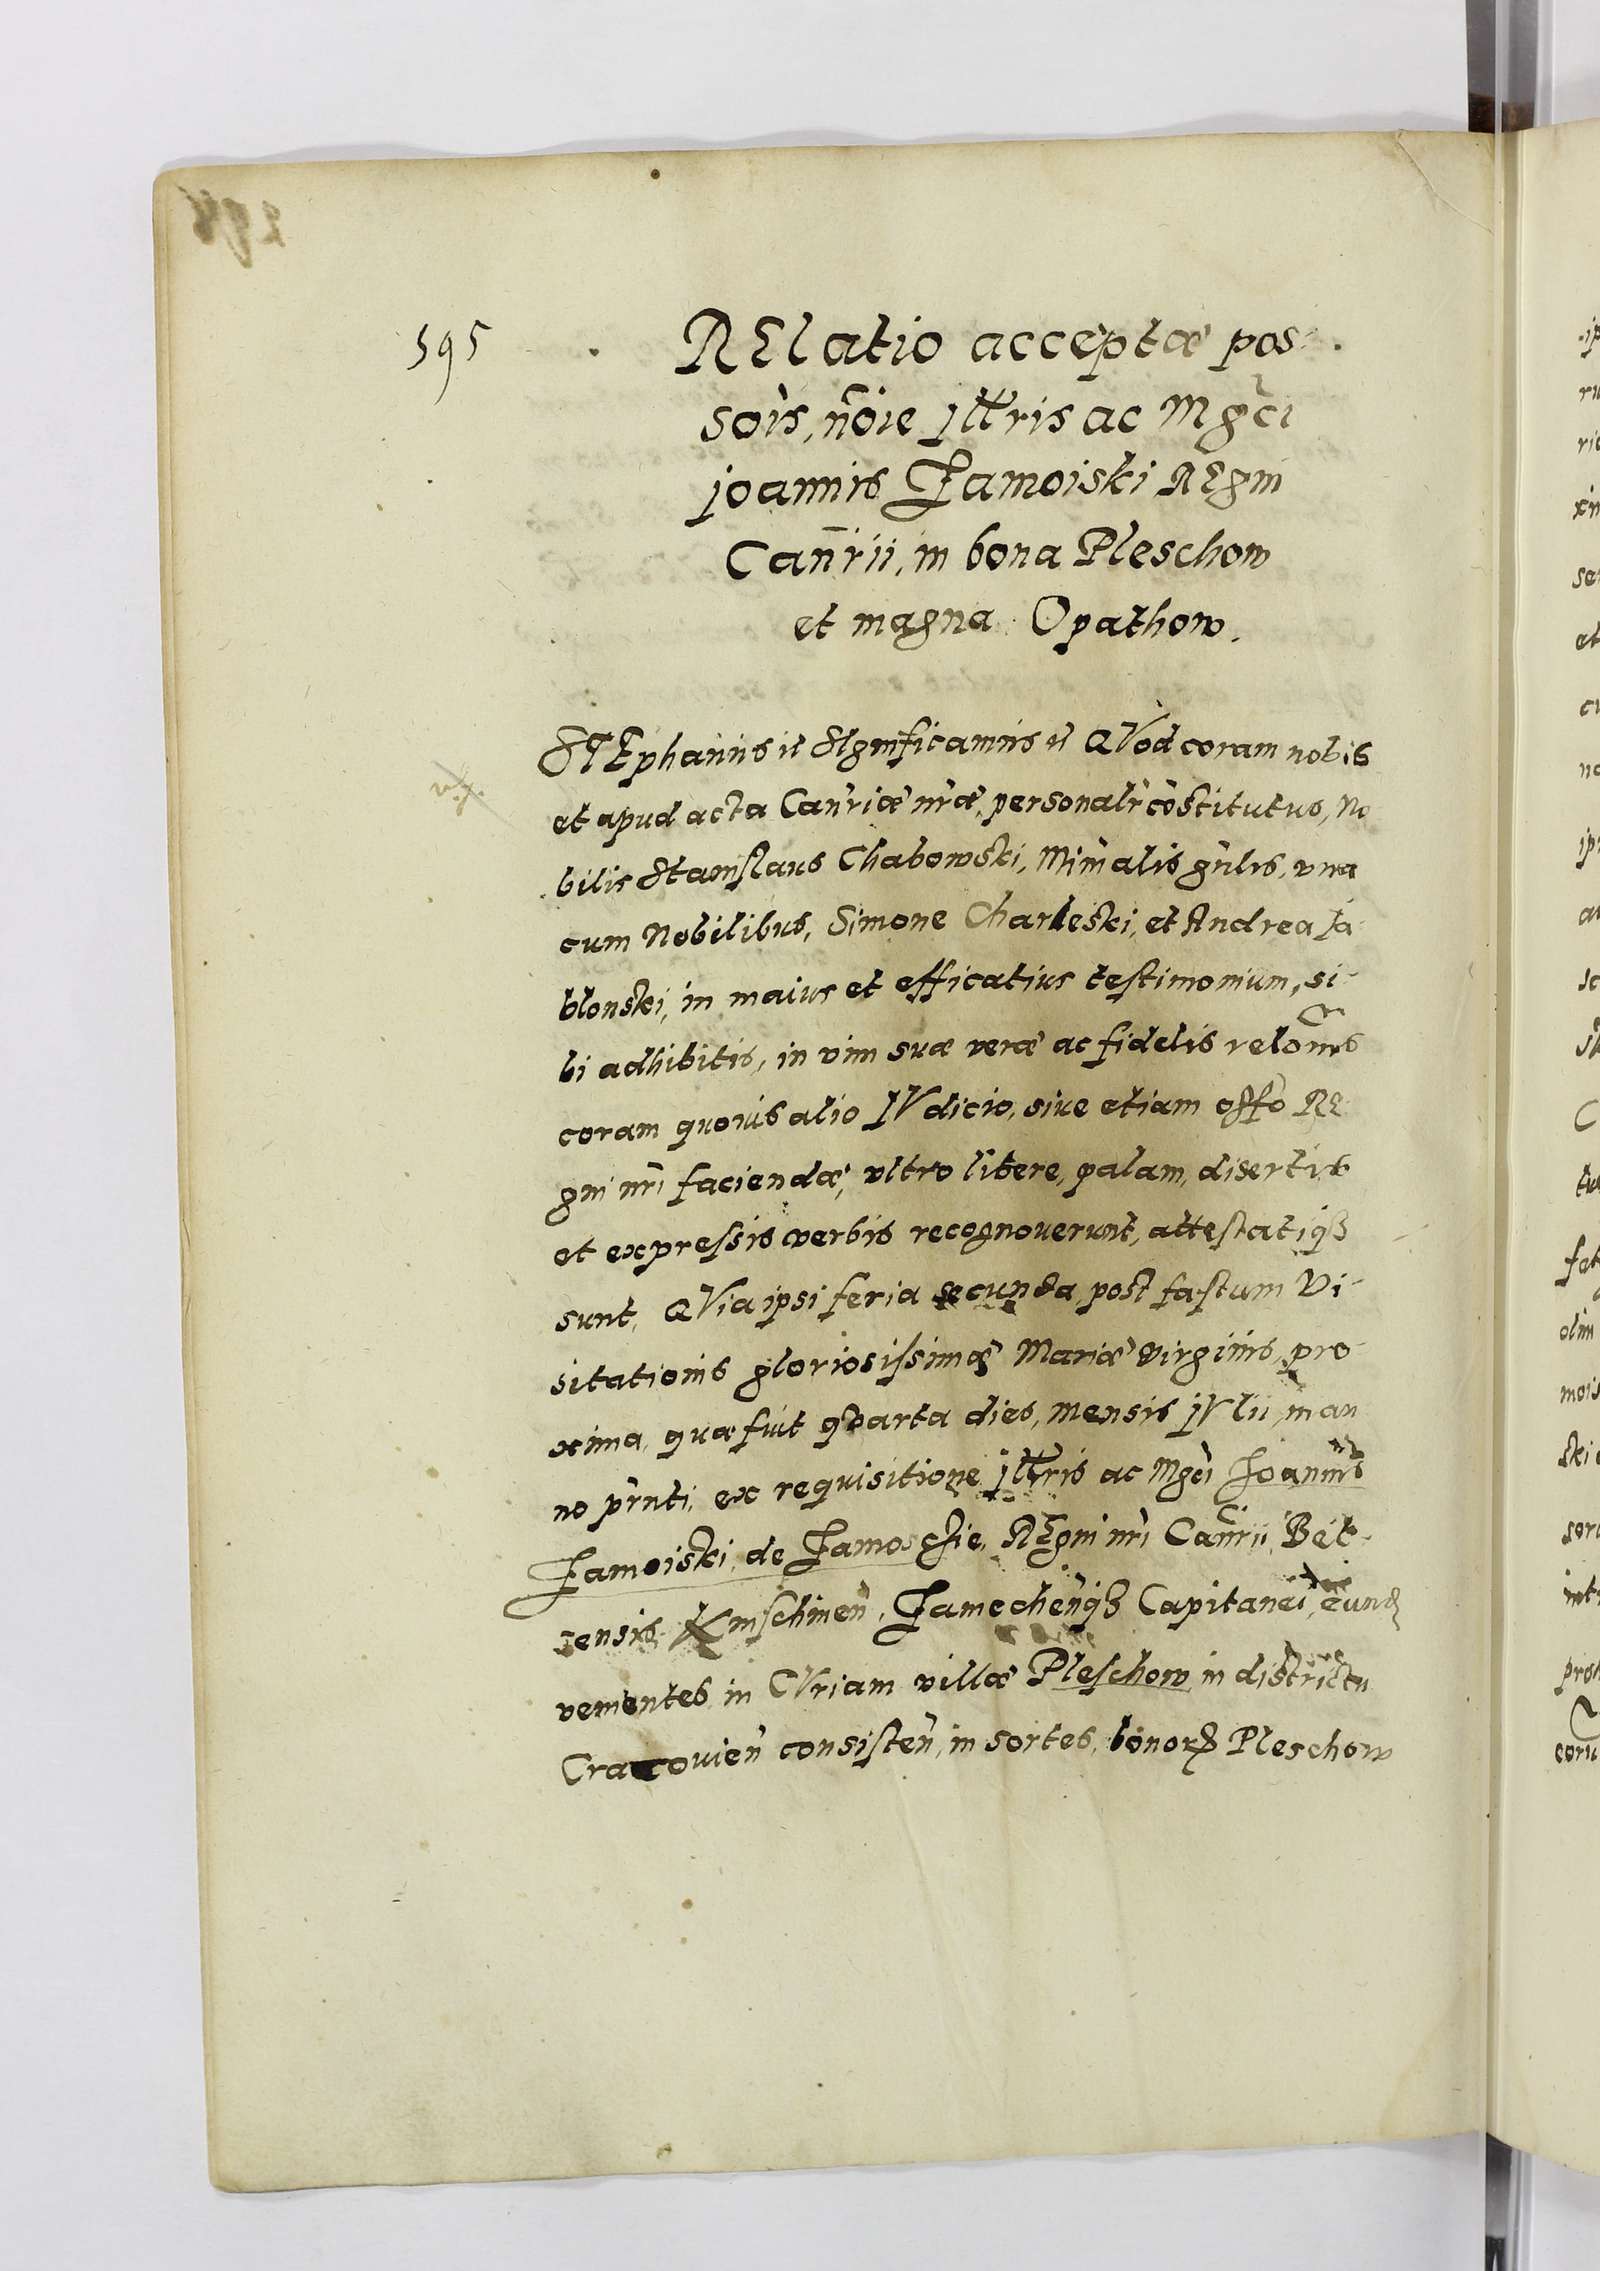 595
RElatio acceptæ pos-
sõis, nõie Jllris ac Mgci
Joannis Zamoiski REgni
Canrii, in bona Pleschow
et magna Opathow.
STEphanus &c Significamus &c QVod coram nobis
et apud acta Canriæ nræ, personalr cõstitutus, No
bilis Stanislaus Chabowski, Minialis gnlis, vna
cum Nobilibus, Simone Charleski, et Andrea Ja-
blonski, in maius et efficatius testimonium, si-
bi adhibitis, in vim suæ veræ ac fidelis relõnis
coram quouis alio JVdicio, siue etiam offo RE
gni nri faciendæ, vltro libere, palam, disertis
et expressis verbis recognouerunt, attestatiqꝫ
sunt, QVia ipsi feria secunda post festum Vi-
sitationis gloriosissimæ Mariæ virginis, pro-
xima, quæ fuit quarta dies, mensis JVlii, in an
no prnti, ex requisitione Jllris ac Mgci Joannis
Zamoiski, de Zamoschie, REgni nri Canrii, Bel-
sensis Knischinen, Zamechenqꝫ Capitanei, eund
venientes in CVriam villæ Pleschow in districtu
Cracouien consisten, in sortes, bonorꝫ Pleschow